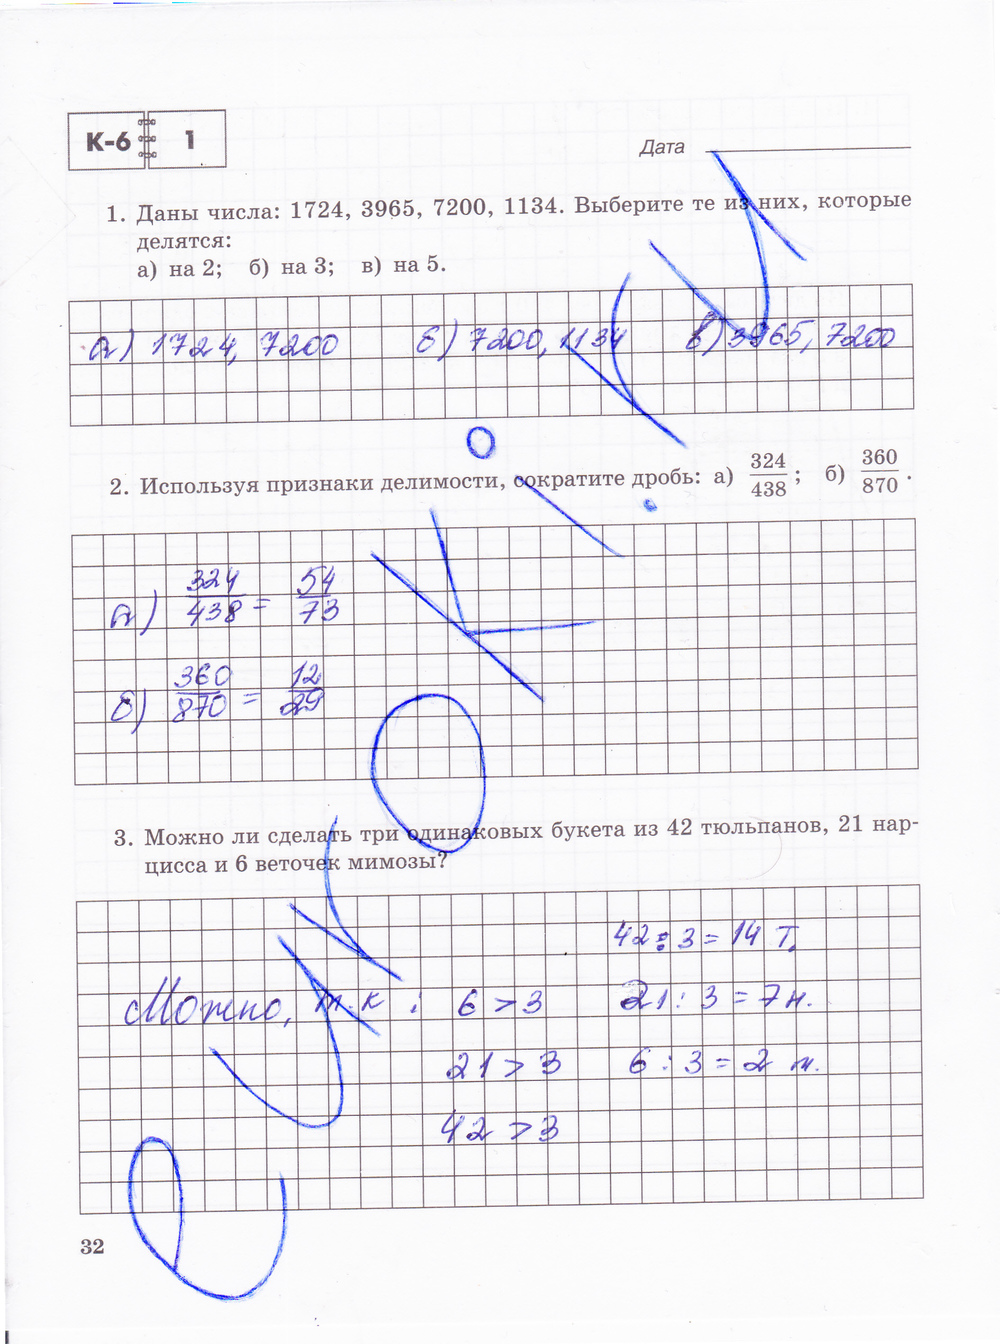 К-6 1
Дата
1. Даны числа: 1724, 3965, 7200, 1134. Выберите те из них, которые
делятся:
а) на 2; б) на 3; в) на 5.
а) 1724, 7200 б) 7200, 1134 в) 3965, 7200
2. Используя признаки делимости, сократите дробь: а) 324/438; б) 360/870.
а) 324/438 = 54/73
б) 360/870 = 12/29
3. Можно ли сделать три одинаковых букета из 42 тюльпанов, 21 нар-
цисса и 6 веточек мимозы?
42 : 3 = 14 т.
Можно, т.к : 6 > 3 21 : 3 = 7 н.
21 > 3 6 : 3 = 2 м.
42 > 3
32